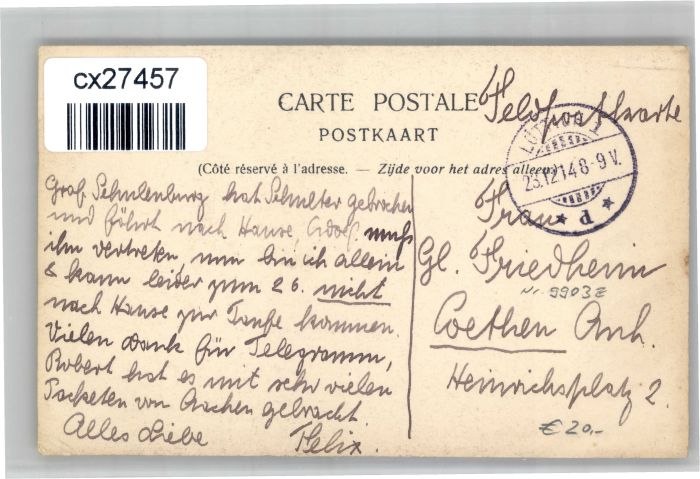 cx27457
CARTE POSTALE
POSTKAART
Feldpostkarte
(Côté réservé à l'adresse. — Zijde voor het adres alleen.)
23.12.14 8-9 V.
* d *
Graf Schulenburg hat Schulter gebrochen
und fährt nach Hause, muß
ihn vertreten, nun bin ich allein
& kann leider zum 26. nicht
nach Hause zur Taufe kommen.
Vielen Dank für Telegramm,
Robert hat es mit sehr vielen
Packeten von Aachen gebracht.
Alles Liebe Felix.
Frau
Gl. Friedheim
Nr. 9903 E
Coethen Anh.
Heinrichsplatz 2.
€ 20,-